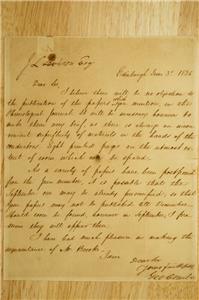 J L Esq
Edinburgh June 3d 1836
Dear Sir
I believe there will be no objection to
the publication of the papers you mention in the
Phrenological Journal. It will be necessary however to
make them very brief, as there is always an
of materials in the hands of the
conductors. Eight printed pages is the utmost
extent of room which can be
As a variety of papers have been postponed
from the June number, it is possible that the
September one may be already, so that
your papers may not be published till December.
Should room be found, however in September, I
they will appear then.
I have had much pleasure in making the
acquaintance of Mr
I am
Dear Sir
Yours faithfully
Geo Combe